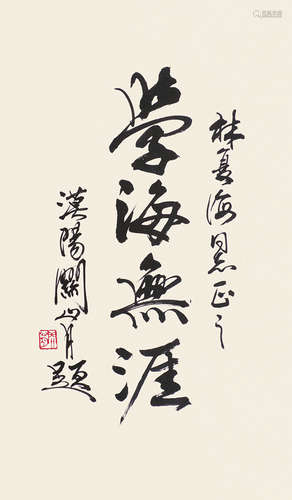 林夏海同志正之
学海無涯
漠陽關山月題